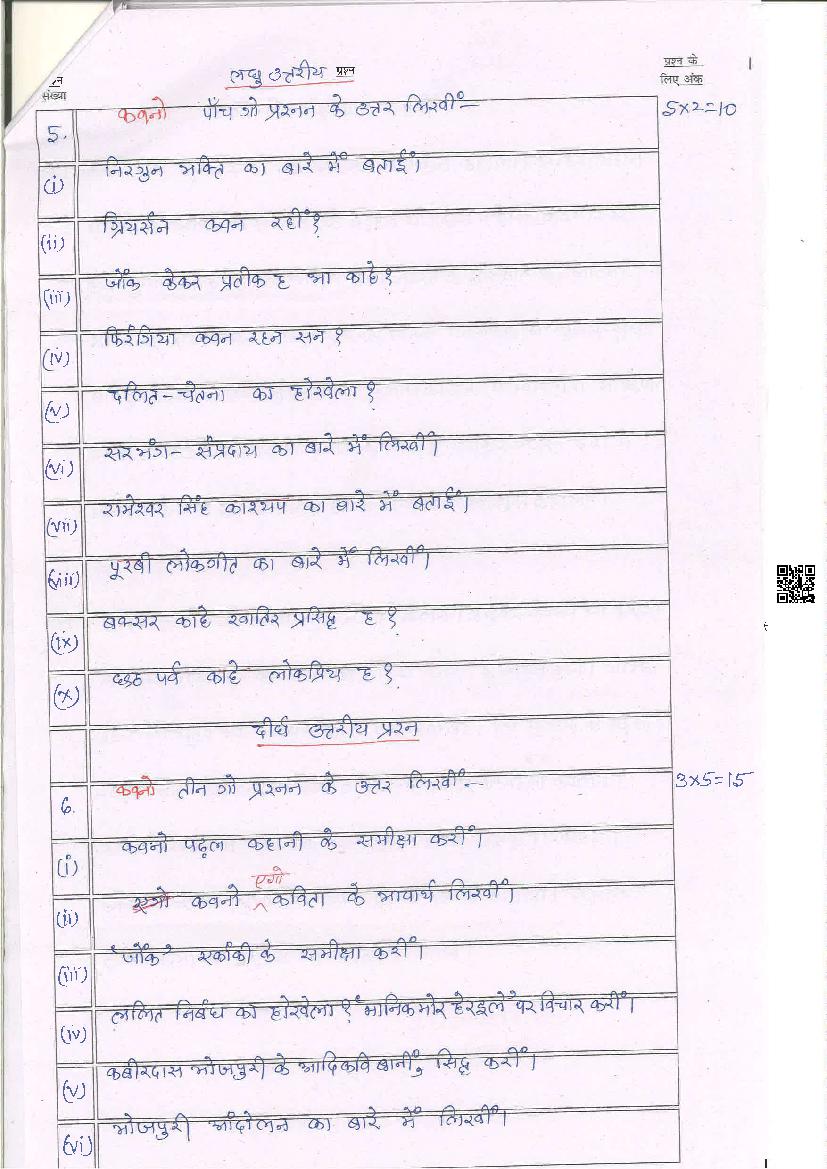 लघु उत्तरीय प्रश्न
प्रश्न के
लिए अंक
संख्या
5. कवनो पाँच गो प्रश्नन के उत्तर लिखीं- 5×2=10
(i) निरगुन भक्ति का बारे में बताईं।
(ii) ग्रियर्सन कवन रहीं?
(iii) जोंक केकर प्रतीक ह आ काहे?
(iv) फिरंगिया कवन रहन सन?
(v) दलित-चेतना का होखेला?
(vi) सरभंग- संप्रदाय का बारे में लिखीं।
(vii) रामेश्वर सिंह काश्यप का बारे में बताईं।
(viii) पूरबी लोकगीत का बारे में लिखीं।
(ix) बक्सर काहे खातिर प्रसिद्ध ह?
(x) छठ पर्व काहे लोकप्रिय ह?
दीर्घ उत्तरीय प्रश्न
6. कवनो तीन गो प्रश्नन के उत्तर लिखीं:-- 3×5=15
(i) कवनो पढ़ल कहानी के समीक्षा करीं।
(ii) कवनो एगो कविता के भावार्थ लिखीं।
(iii) 'जोंक' एकांकी के समीक्षा करीं।
(iv) ललित निबंध का होखेला? 'मानिक मोर हेरइले' पर विचार करीं।
(v) कबीरदास भोजपुरी के आदिकवि बानीं, सिद्ध करीं।
(vi) भोजपुरी आंदोलन का बारे में लिखीं।